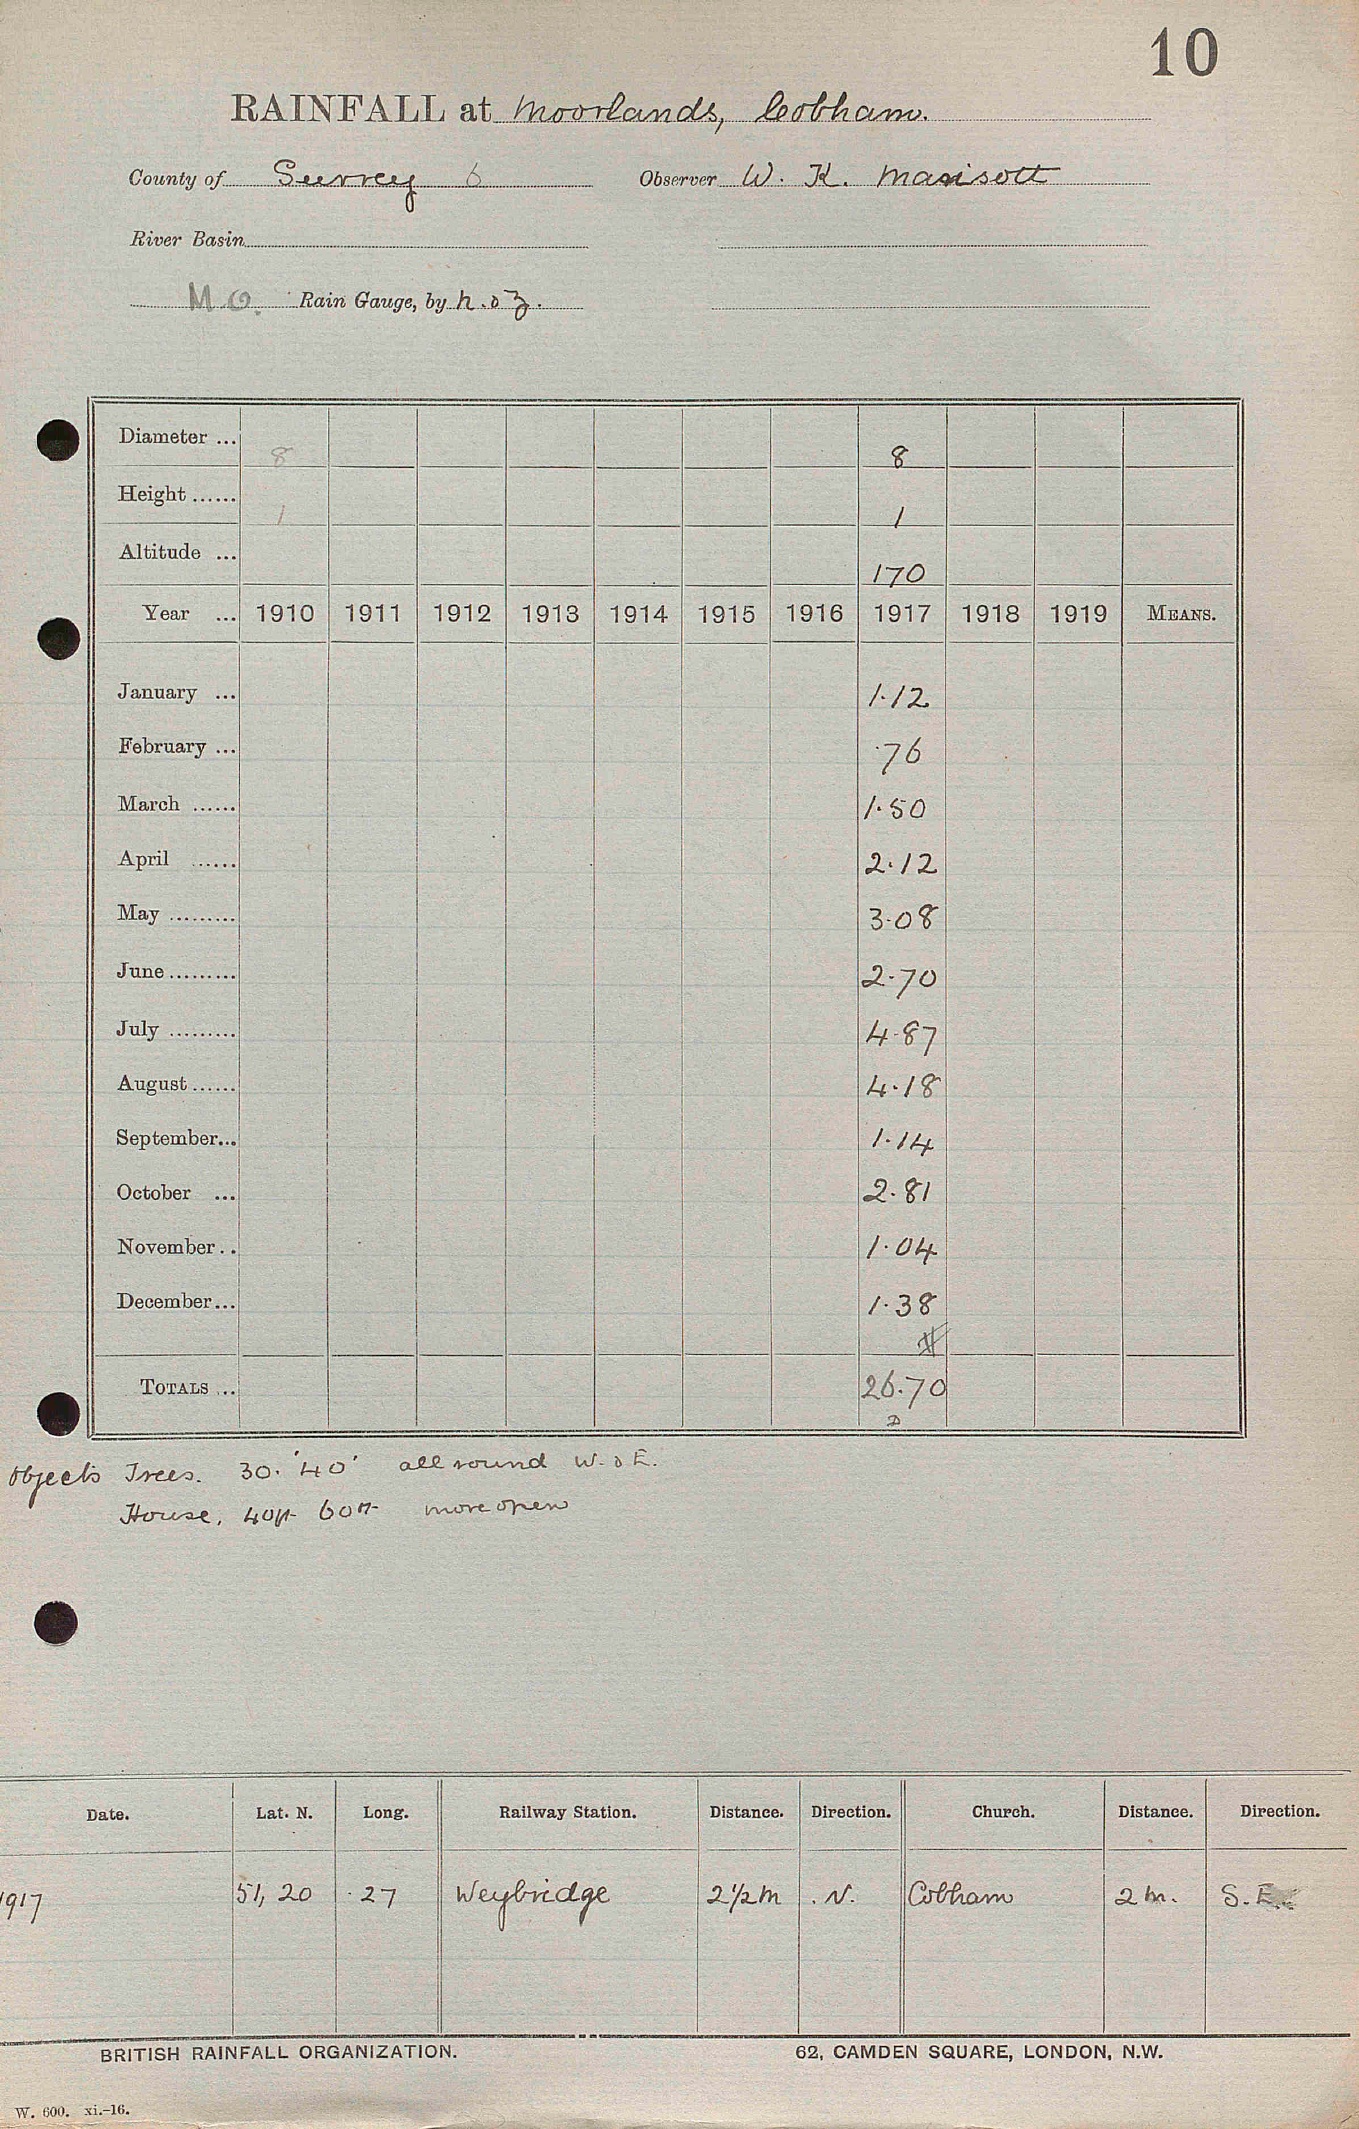 10
RAINFALL at Moorlands, Cobham.
County of Surrey 6 Observer W. K.
River Basin
M.O. Rain Gauge, by N. & Z.
Diameter ... 8 8
Height ...... 1 1
Altitude ... 170
Year ... 1910 1911 1912 1913 1914 1915 1916 1917 1918 1919 MEANS.
January ... 1.12
February ... .76
March ...... 1.50
April ...... 2.12
May ......... 3.08
June ......... 2.70
July ......... 4.87
August ...... 4.18
September... 1.14
October ... 2.81
November.. 1.04
December... 1.38
TOTALS ... 26.70
Objects Trees. 30. '40' all round W. & E.
House, 40ft 60ft more open
Date. Lat. N. Long. Railway Station. Distance. Direction. Church. Distance. Direction.
1917 51, 20 .27 Weybridge 2½m .N. Cobham 2m. S.E.
BRITISH RAINFALL ORGANIZATION. 62, CAMDEN SQUARE, LONDON, N.W.
W. 600. xi.-16.